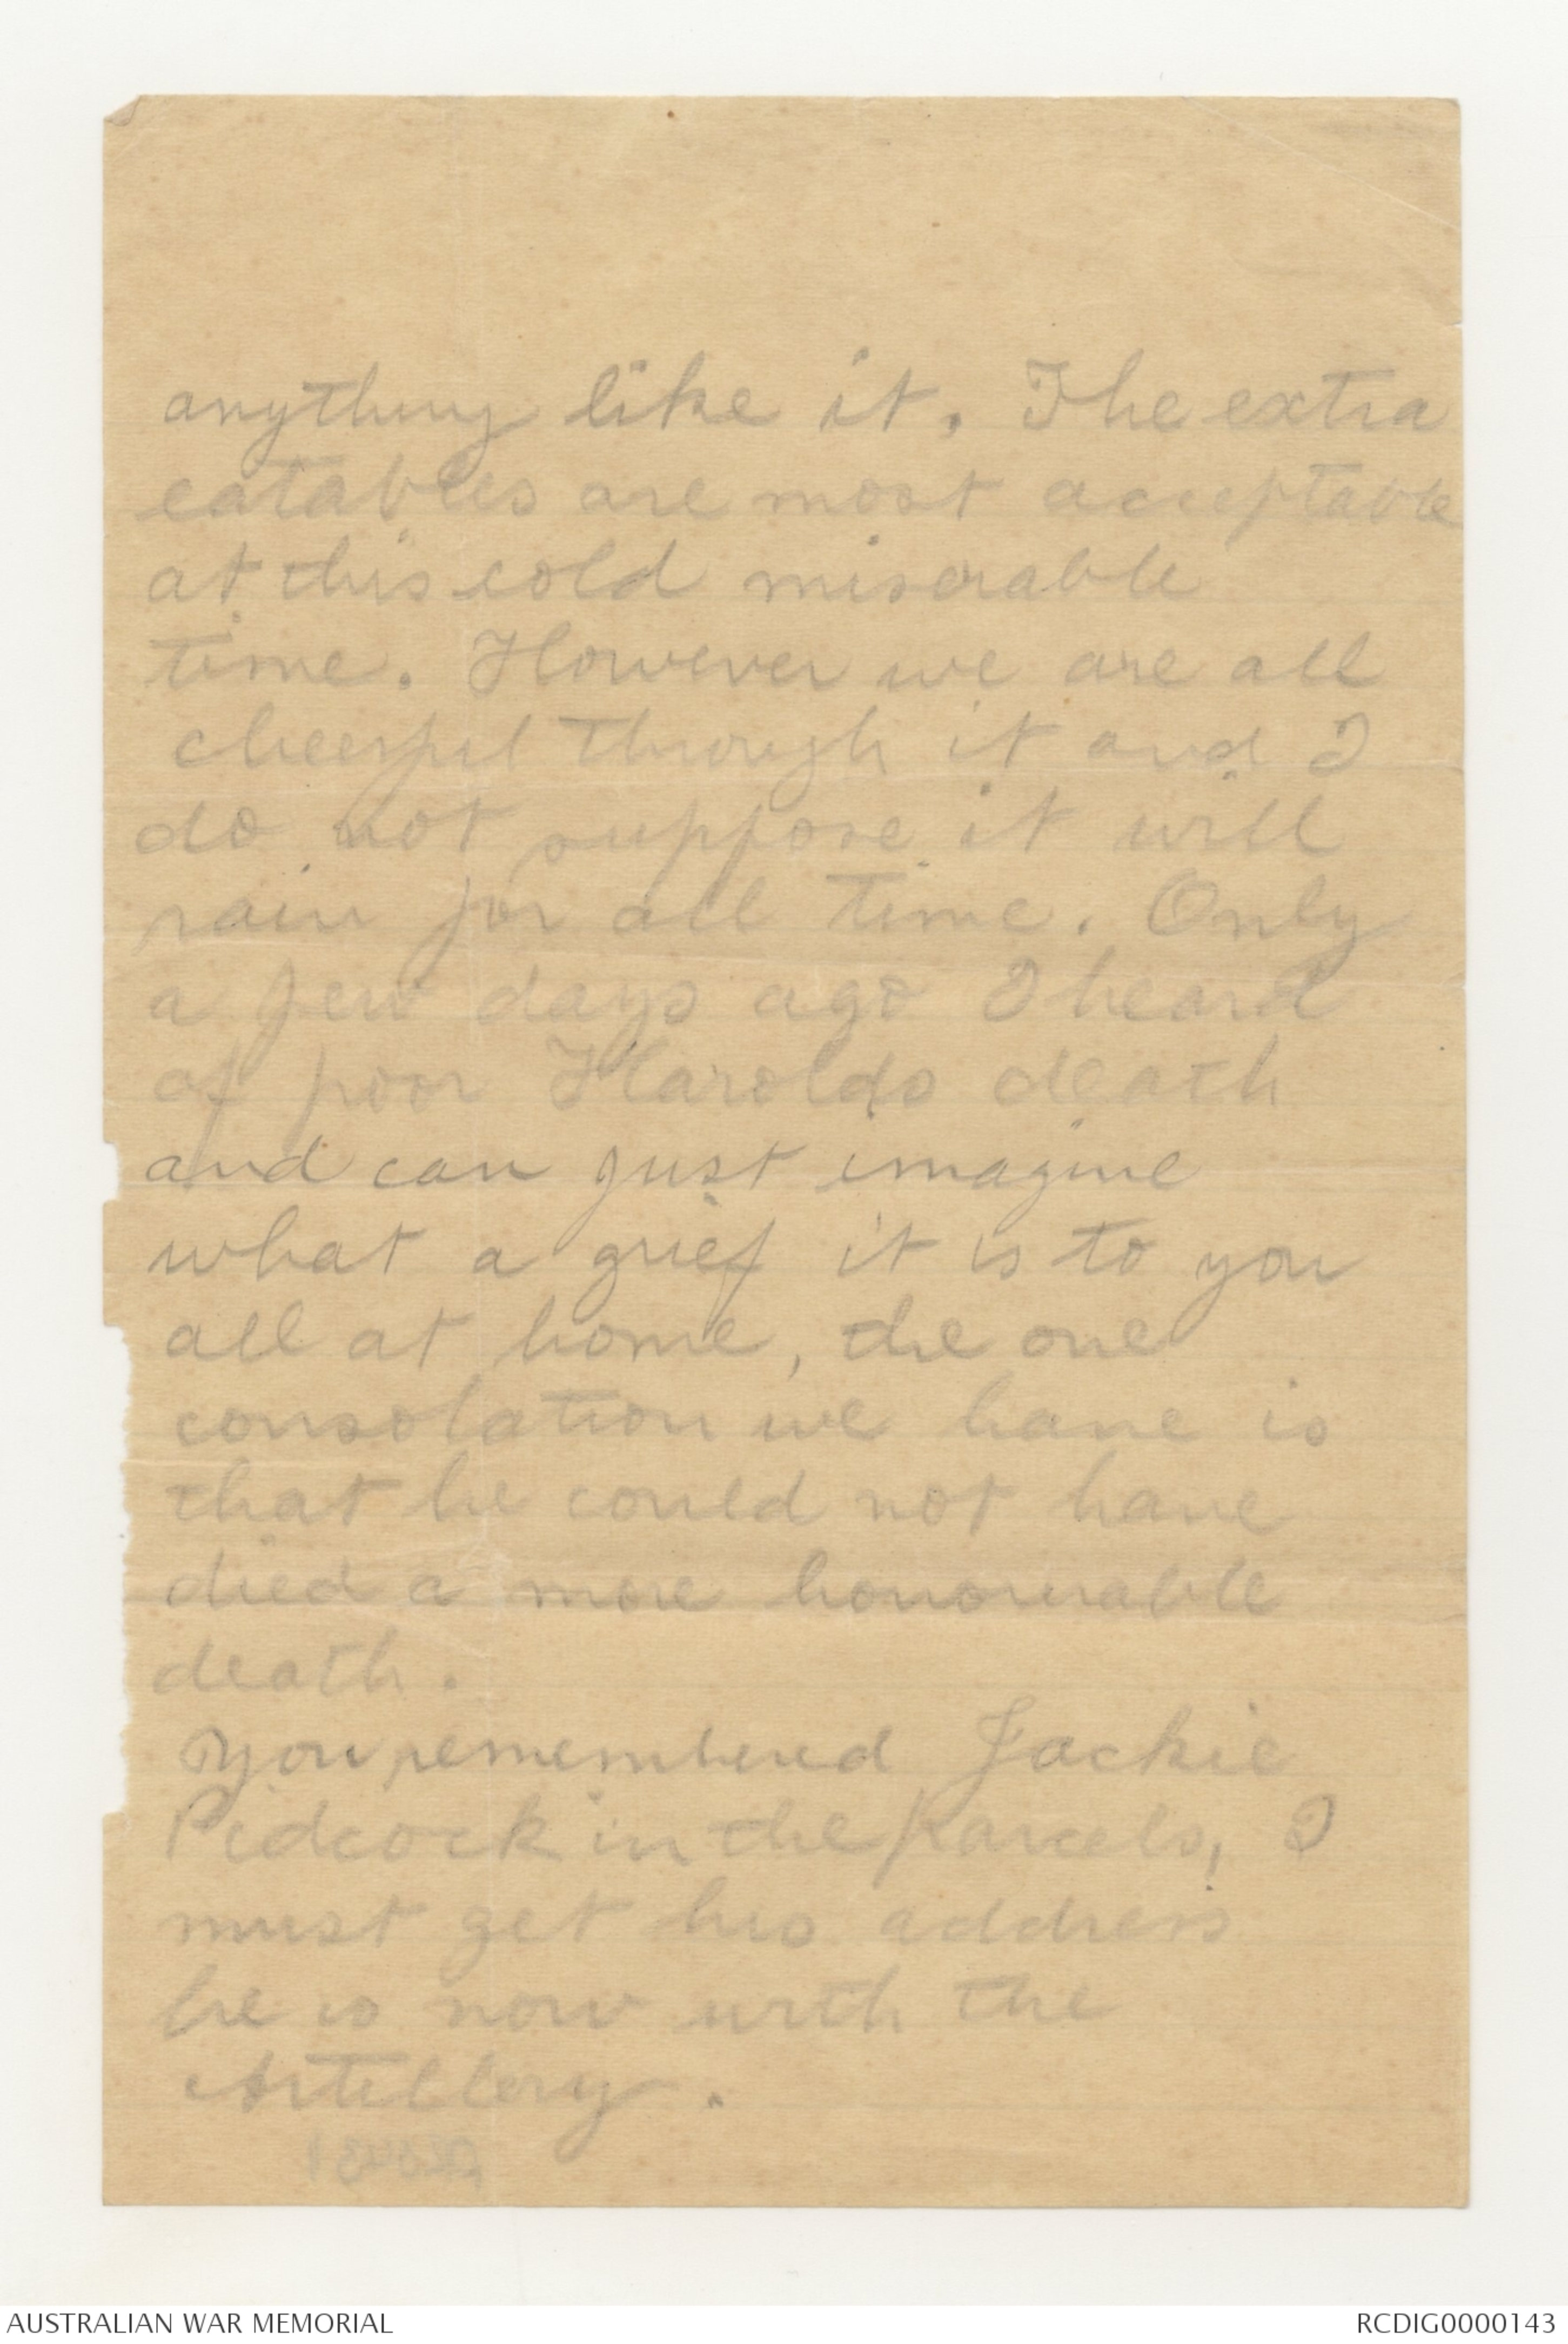 anything like it. The extra
eatables are most acceptable
at this cold miserable
time. However we are all
cheerful through it and I
do not suppose it will
rain for all time. Only
a few days ago I heard
of poor Harolds death
and can just imagine
what a grief it is to you
all at home, the one
consolation we have is
that he could not have
died a more honourable
death.
You remembered Jackie
Pidcock in the parcels, I
must get his address
he is now with the
Artillery.
AUSTRALIAN WAR MEMORIAL
RCDIG0000143